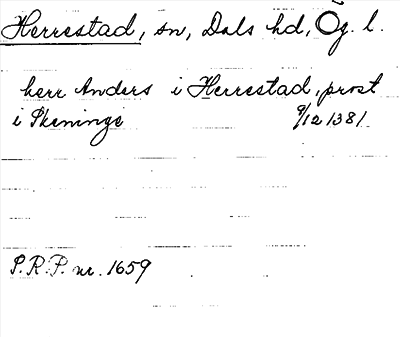 Herrestad, sn, Dals hd, Ög. l.
herr Anders i Herrestad, prost
i Skeninge 9/12 1381
P.R.P. nr. 1659